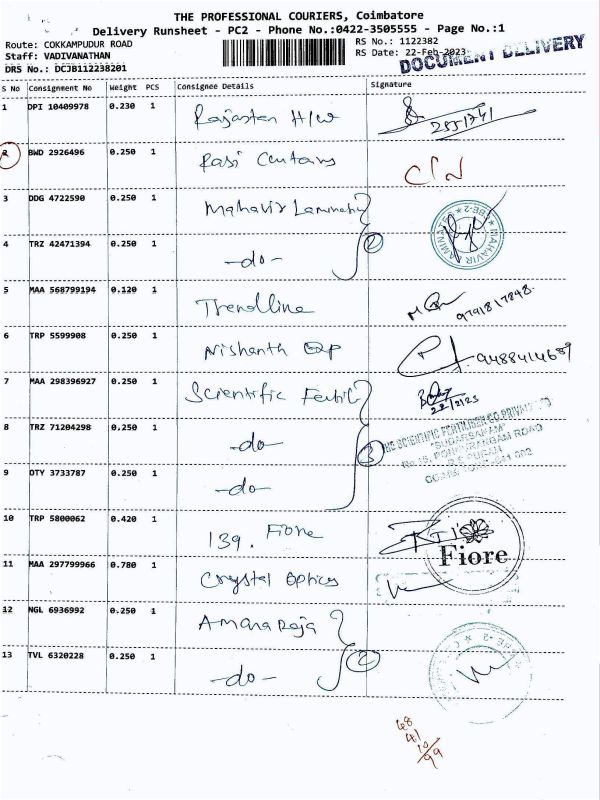 THE PROFESSIONAL COURIERS, Coimbatore
Delivery Runsheet - PC2 - Phone No.:0422-3505555 - Page No.:1
Route: COKKAMPUDUR ROAD
Staff: VADIVANATHAN
DRS No.: DCJB112238201
RS No.: 1122382
RS Date: 22-Feb-2023
DOCUMENT DELIVERY
S No Consignment No Weight PCS Consignee Details Signature
1 DPI 10409978 0.230 1 Rajastan H/W
2 BWD 2926496 0.250 1 Rasi
3 DDG 4722590 0.250 1 Mahavir
4 TRZ 42471394 0.250 1 -do- 2
MAHAVIR LAMINATES CBE-2
5 MAA 568799194 0.120 1 Trendline 9791817848
6 TRP 5599908 0.250 1 Nishanth Exp
7 MAA 298396927 0.250 1 Scientific Fertil 22/2/23
8 TRZ 71204298 0.250 1 -do- 3
THE SCIENTIFIC FERTILISER CO PRIVATE LTD
"SUDARSANAM"
ROAD
R.S. PURAM
COIMBATORE-641 002
9 OTY 3733787 0.250 1 -do-
10 TRP 5800062 0.420 1 139. Fione
Fiore
11 MAA 297799966 0.780 1 Crystal Optics
12 NGL 6936992 0.250 1 Amararaja
13 TVL 6320228 0.250 1 -do- 2
48
41
10
99